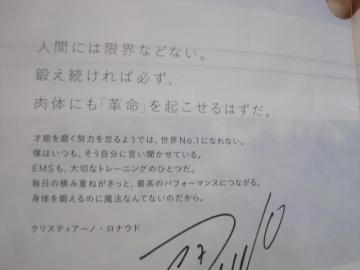 人間には限界などない。
鍛え続ければ必ず、
肉体にも「革命」を起こせるはずだ。
才能を磨く努力を怠るようでは、世界No.1になれない。
僕はいつも、そう自分に言い聞かせている。
EMSも、大切なトレーニングのひとつだ。
毎日の積み重ねがきっと、最高のパフォーマンスにつながる。
身体を鍛えるのに魔法なんてないのだから。
クリスティアーノ・ロナウド